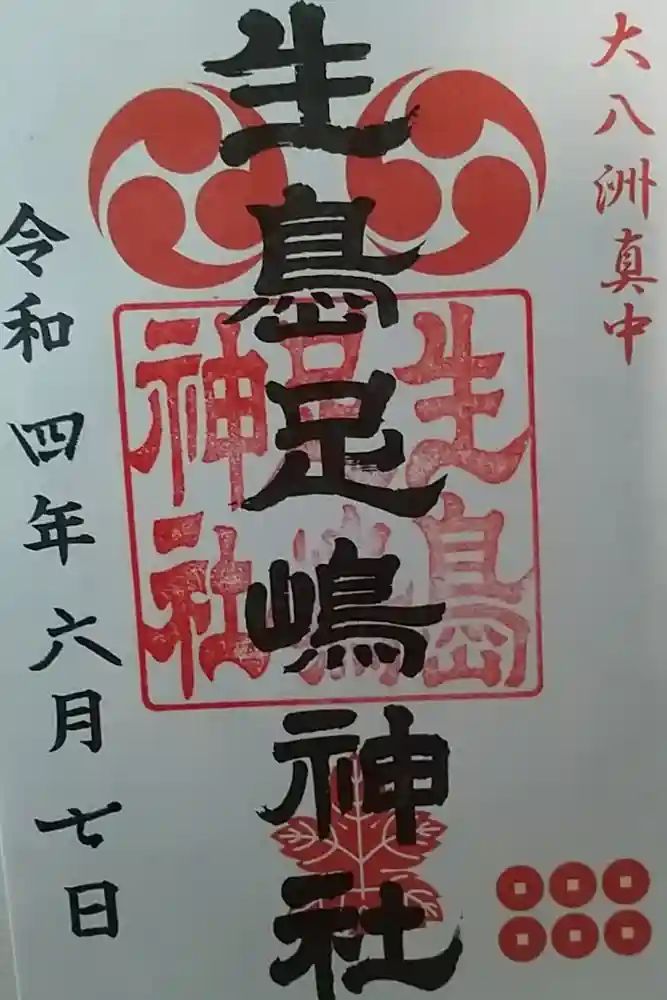 大八洲真中
生島足嶋神社
生島
足嶋
神社
令和四年六月七日